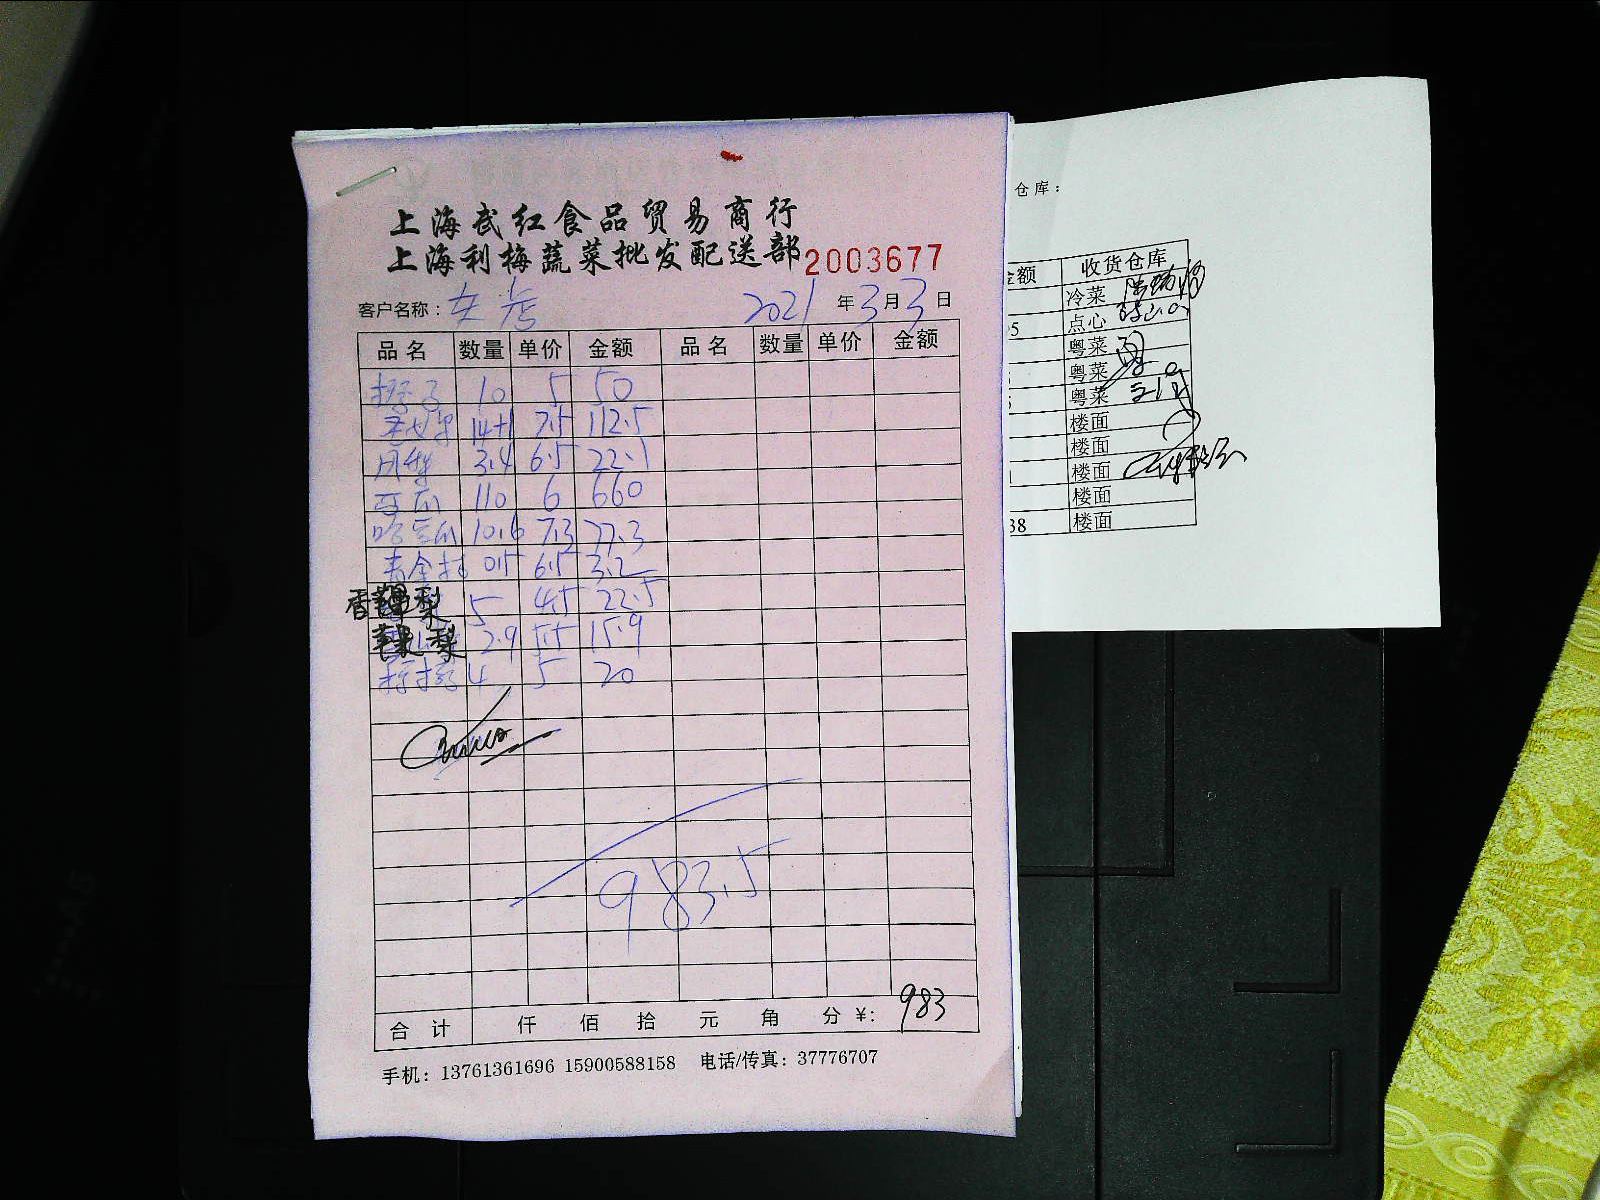 上海武红食品贸易商行
上海利梅蔬菜批发配送部 2003677
客户名称： 2021年3月3日
品名 数量 单价 金额 品名 数量 单价 金额
橙子 10 5 50
圣女果 14+1 7.5 112.5
3.4 6.5 22.1
西瓜 110 6 660
哈密瓜 10.6 7.3 77.3
青金桔 0.5 6.5 3.2
香梨 5 4.5 22.5
梨 2.9 5.5 15.9
4 5 20
983.5
合计 仟 佰 拾 元 角 分 ¥: 983
手机：13761361696 15900588158 电话/传真：37776707
仓库：
金额 收货仓库
冷菜
点心
粤菜
粤菜
粤菜
楼面
楼面
楼面
楼面
38 楼面